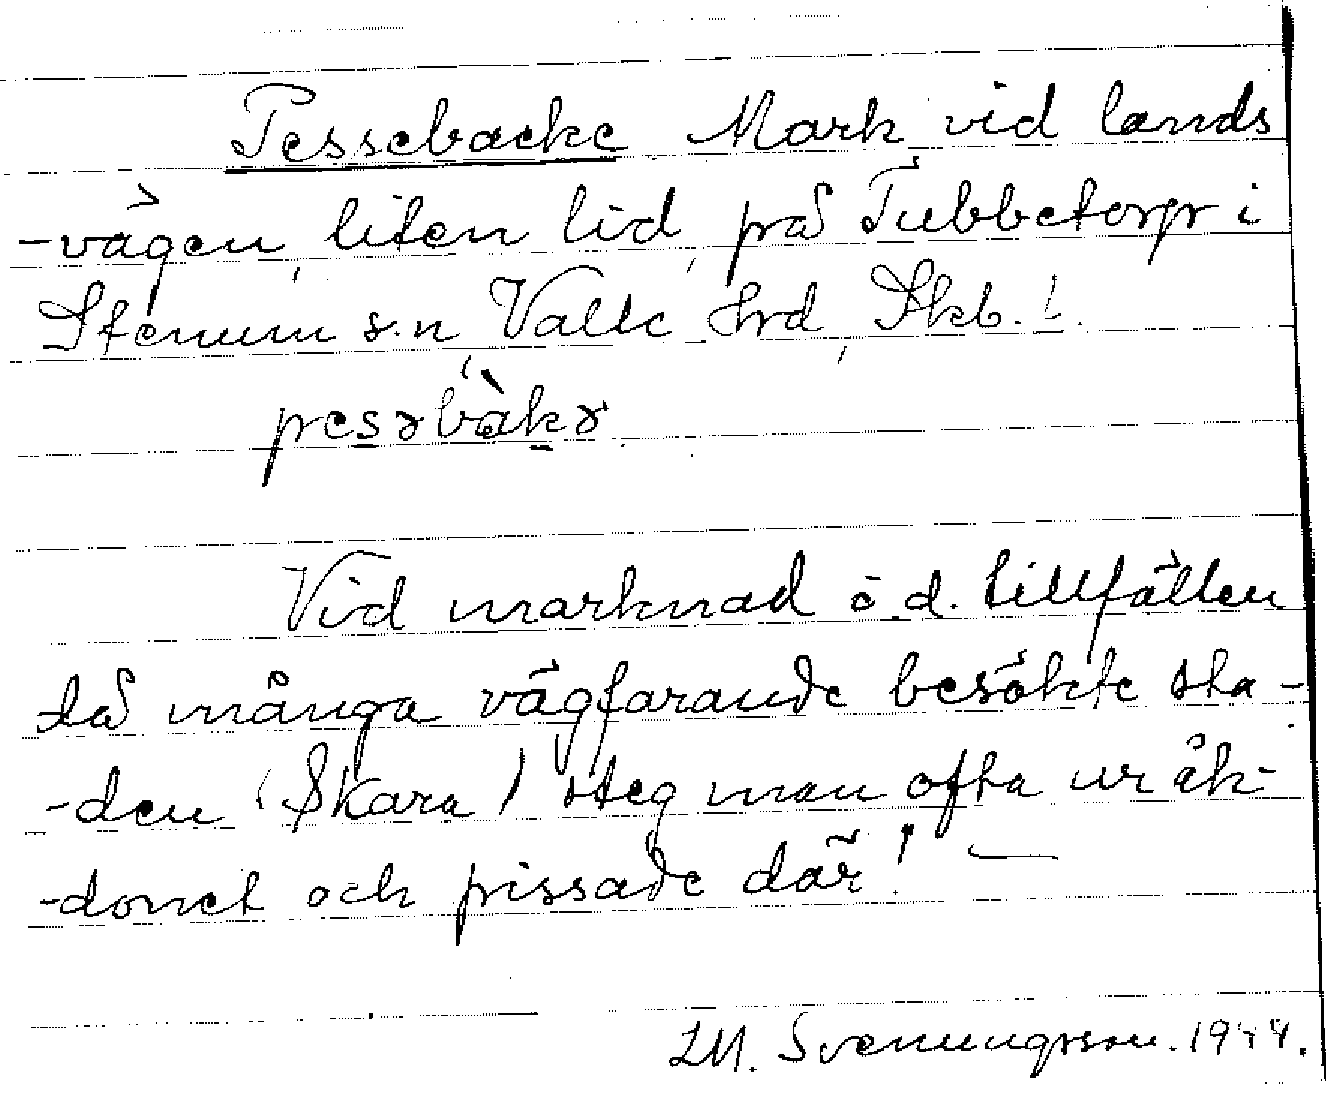 Pessebacke Mark vid lands
-vägen, liten lid, på Tubbetorp i
Stenum s.n Valle Hrd, Skb. l.
pesəbàkə
Vid marknad ö.d. tillfällen
då många vägfarande besökte sta-
-den (Skara) steg man ofta ur åk-
-donet och pissade där! —
LM. Svenungsson. 1944.